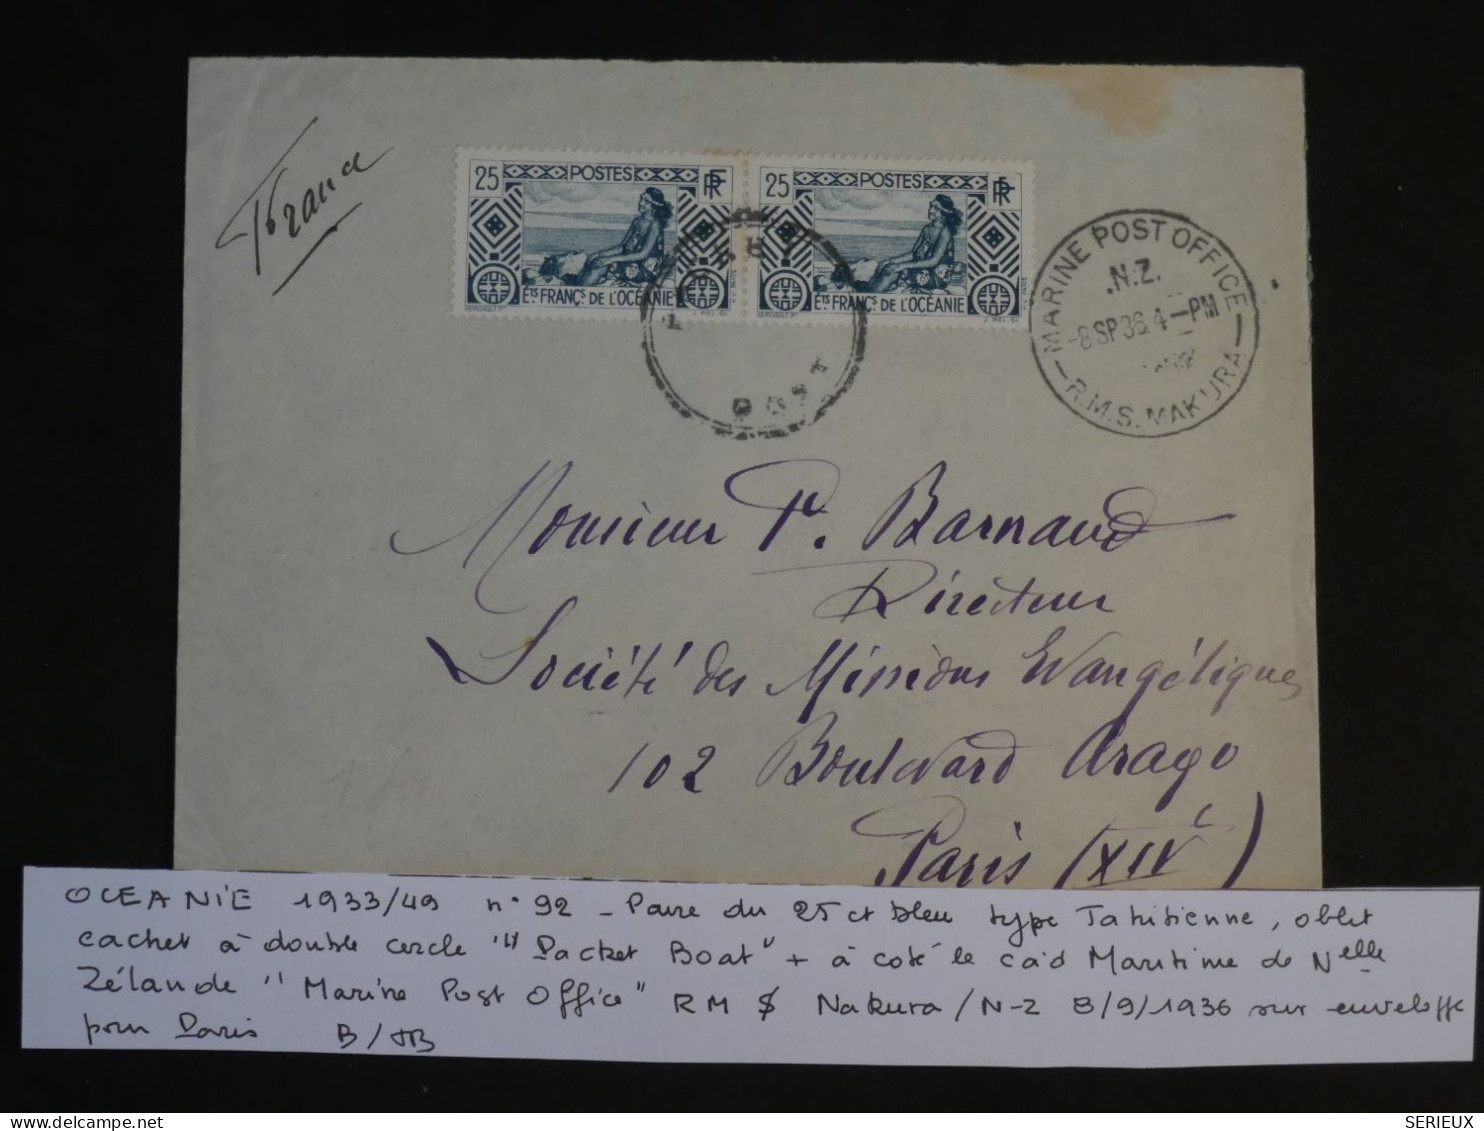 France
25 POSTES RF
ÉTS FRANÇS DE L'OCÉANIE
25 POSTES RF
ÉTS FRANÇS DE L'OCÉANIE
MARINE POST OFFICE
N.Z.
-8SP36 4-PM
R.M.S. MAKURA
Monsieur P. Barnaud
Directeur
Société des Missions Evangéliques
102 Boulevard Arago
Paris (XIVe)
OCEANIE 1933/49 n° 92 - Paire du 25 ct bleu type Tahitienne, oblit
cachet à double cercle "Packet Boat" + à coté le càd Maritime de Nelle
Zélande "Marine Post Office" RM $ Nakura/N-Z 8/9/1936 sur enveloppe
pour Paris B/TB
delcampe.net
SERIEUX